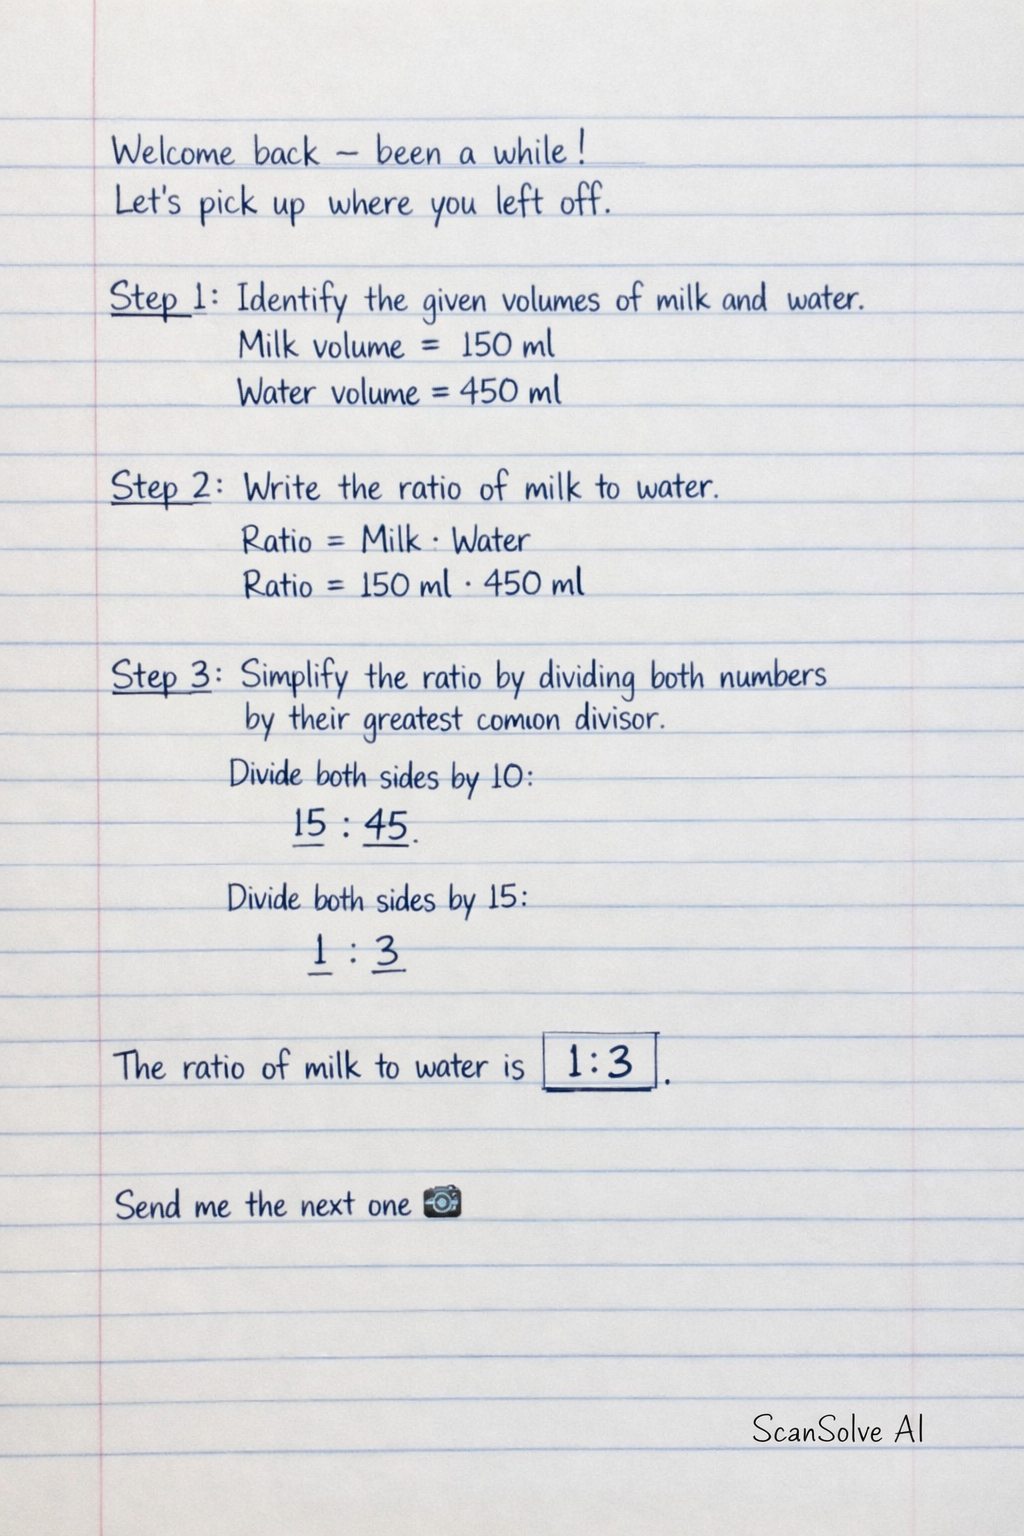 Welcome back – been a while!
Let's pick up where you left off.
Step 1: Identify the given volumes of milk and water.
Milk volume = 150 ml
Water volume = 450 ml
Step 2: Write the ratio of milk to water.
Ratio = Milk : Water
Ratio = 150 ml · 450 ml
Step 3: Simplify the ratio by dividing both numbers
by their greatest comıon divisor.
Divide both sides by 10:
15 : 45.
Divide both sides by 15:
1 : 3
The ratio of milk to water is 1:3.
Send me the next one 📷
ScanSolve AI